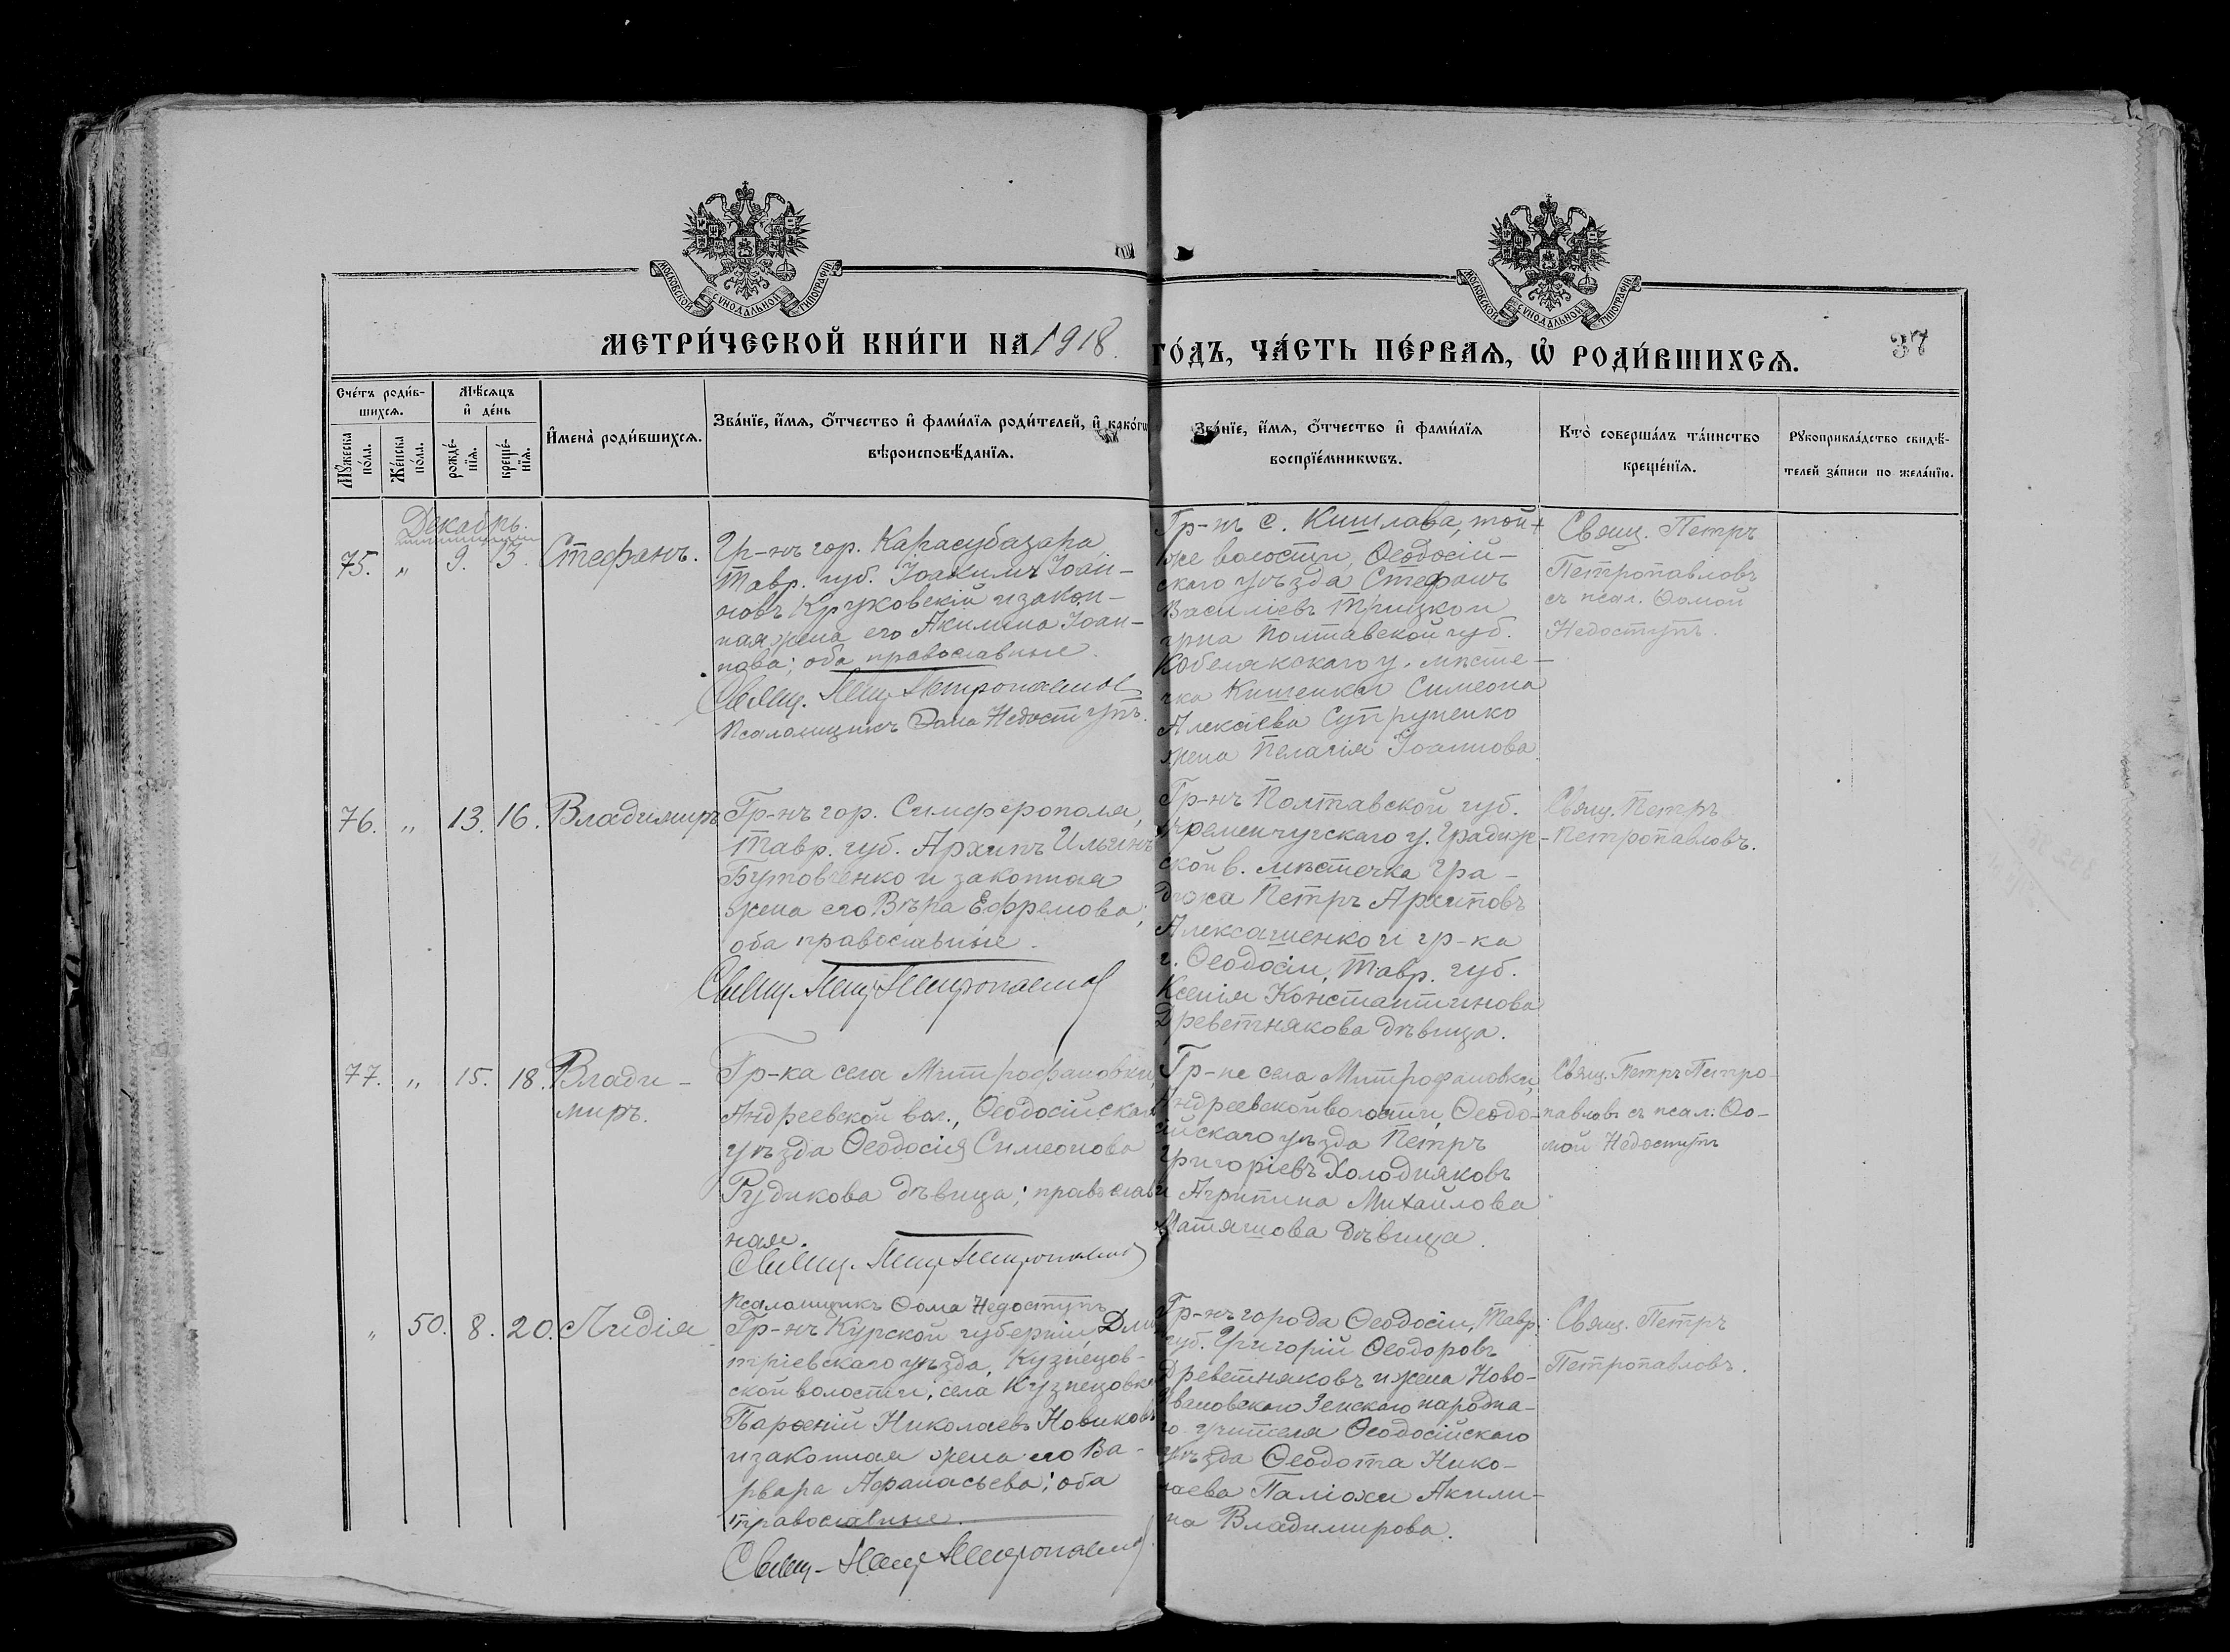 МОСКОВСКОЙ СУНОДАЛЬНОЙ ТИПОГРАФІИ
МОСКОВСКОЙ СУНОДАЛЬНОЙ ТИПОГРАФІИ
МЕТРИ́ЧЕСКОЙ КНИ́ГИ НА 1918.
ГО́ДЪ, ЧА́СТЬ ПЕ́РВАѦ, Ѡ҆ РОДИ́ВШИХСѦ.
37
Сче́тъ роди́в-
шихсѧ.
Мѣ́сѧцъ
и҆ де́нь
Мꙋ́жеска
по́ла.
Же́нска
по́ла.
рожде́-
нїѧ.
креще́-
нїѧ.
И҆мена̀ роди́вшихсѧ.
Зва́нїе, и҆́мѧ, ѻ҆́тчество и҆ фами́лїѧ роди́телей, и҆ како́гѡ
вѣроисповѣ́данїѧ.
Зва́нїе, и҆́мѧ, ѻ҆́тчество и҆ фами́лїѧ
воспрїе́мникѡвъ.
Кто̀ соверша́лъ та́инство
креще́нїѧ.
Рꙋкоприкла́дство свидѣ́-
телей за́писи по жела́нїю.
Декабрь.
75. " 9. 13. Стефанъ.
Гр-нъ гор. Карасубазара
Тавр. губ. Іоакимъ Іоан-
новъ Кружовскій и закон-
ная жена его Акилина Іоан-
нова; оба православные.
Свящ. Петр Петропавлов
Псаломщикъ Ѳома Недоступъ.
Гр-нъ с. Кишлава, той-
же волости, Ѳеодосій-
скаго уѣзда Стефанъ
Василіевъ Трицкои
гр-ка Полтавской губ.
Кобелякскаго у. мѣсте-
чка Кишенки Симеона
Алексіева Супруненко
жена Пелагія Іоаннова.
Свящ. Петръ
Петропавловъ
съ псал. Ѳомой
Недоступъ.
76. " 13. 16. Владимиръ
Гр-нъ гор. Симферополя,
Тавр. губ. Архипъ Ильинъ
Бутовченко и законная
жена его Вѣра Ефремова;
оба православные.
Свящ. Петр Петропавлов
Гр-нъ Полтавской губ.
Кременчугскаго у. Градиж-
ской в. мѣстечка Гра-
дижа Петръ Архиповъ
Алексашенко и гр-ка
г. Ѳеодосіи, Тавр. губ.
Ксенія Константинова
Древетнякова дѣвица.
Свящ. Петръ
Петропавловъ.
77. " 15. 18. Влади-
миръ.
Гр-ка села Митрофановки,
Андреевской вол., Ѳеодосійскаго
уѣзда Ѳеодосія Симеонова
Рудикова дѣвица; православ-
ная.
Свящ. Петр Петропавлов
Псаломщикъ Ѳома Недоступъ
Гр-не села Митрофановки,
Андреевской волости, Ѳеодо-
сійскаго уѣзда Петръ
Григоріевъ Холодняковъ
и Агрипина Михайлова
Матяшова дѣвица.
Свящ. Петръ Петро-
павловъ съ псал. Ѳо-
мой Недоступъ
" 50. 8. 20. Лидія
Гр-нъ Курской губерніи, Дми-
тріевскаго уѣзда, Кузнецов-
ской волости, села Кузнецовки
Парѳеній Николаевъ Новиковъ
и законная жена его Ва-
рвара Афанасьева; оба
православные.
Свящ. Петр Петропавлов
Гр-нъ города Ѳеодосіи, Тавр.
губ. Григорій Ѳеодоровъ
Древетняковъ и жена Ново-
Ивановскаго Земскаго народна-
го учителя Ѳеодосійскаго
уѣзда Ѳеодота Нико-
лаева Паліохи Акили-
на Владимирова.
Свящ. Петръ
Петропавловъ.